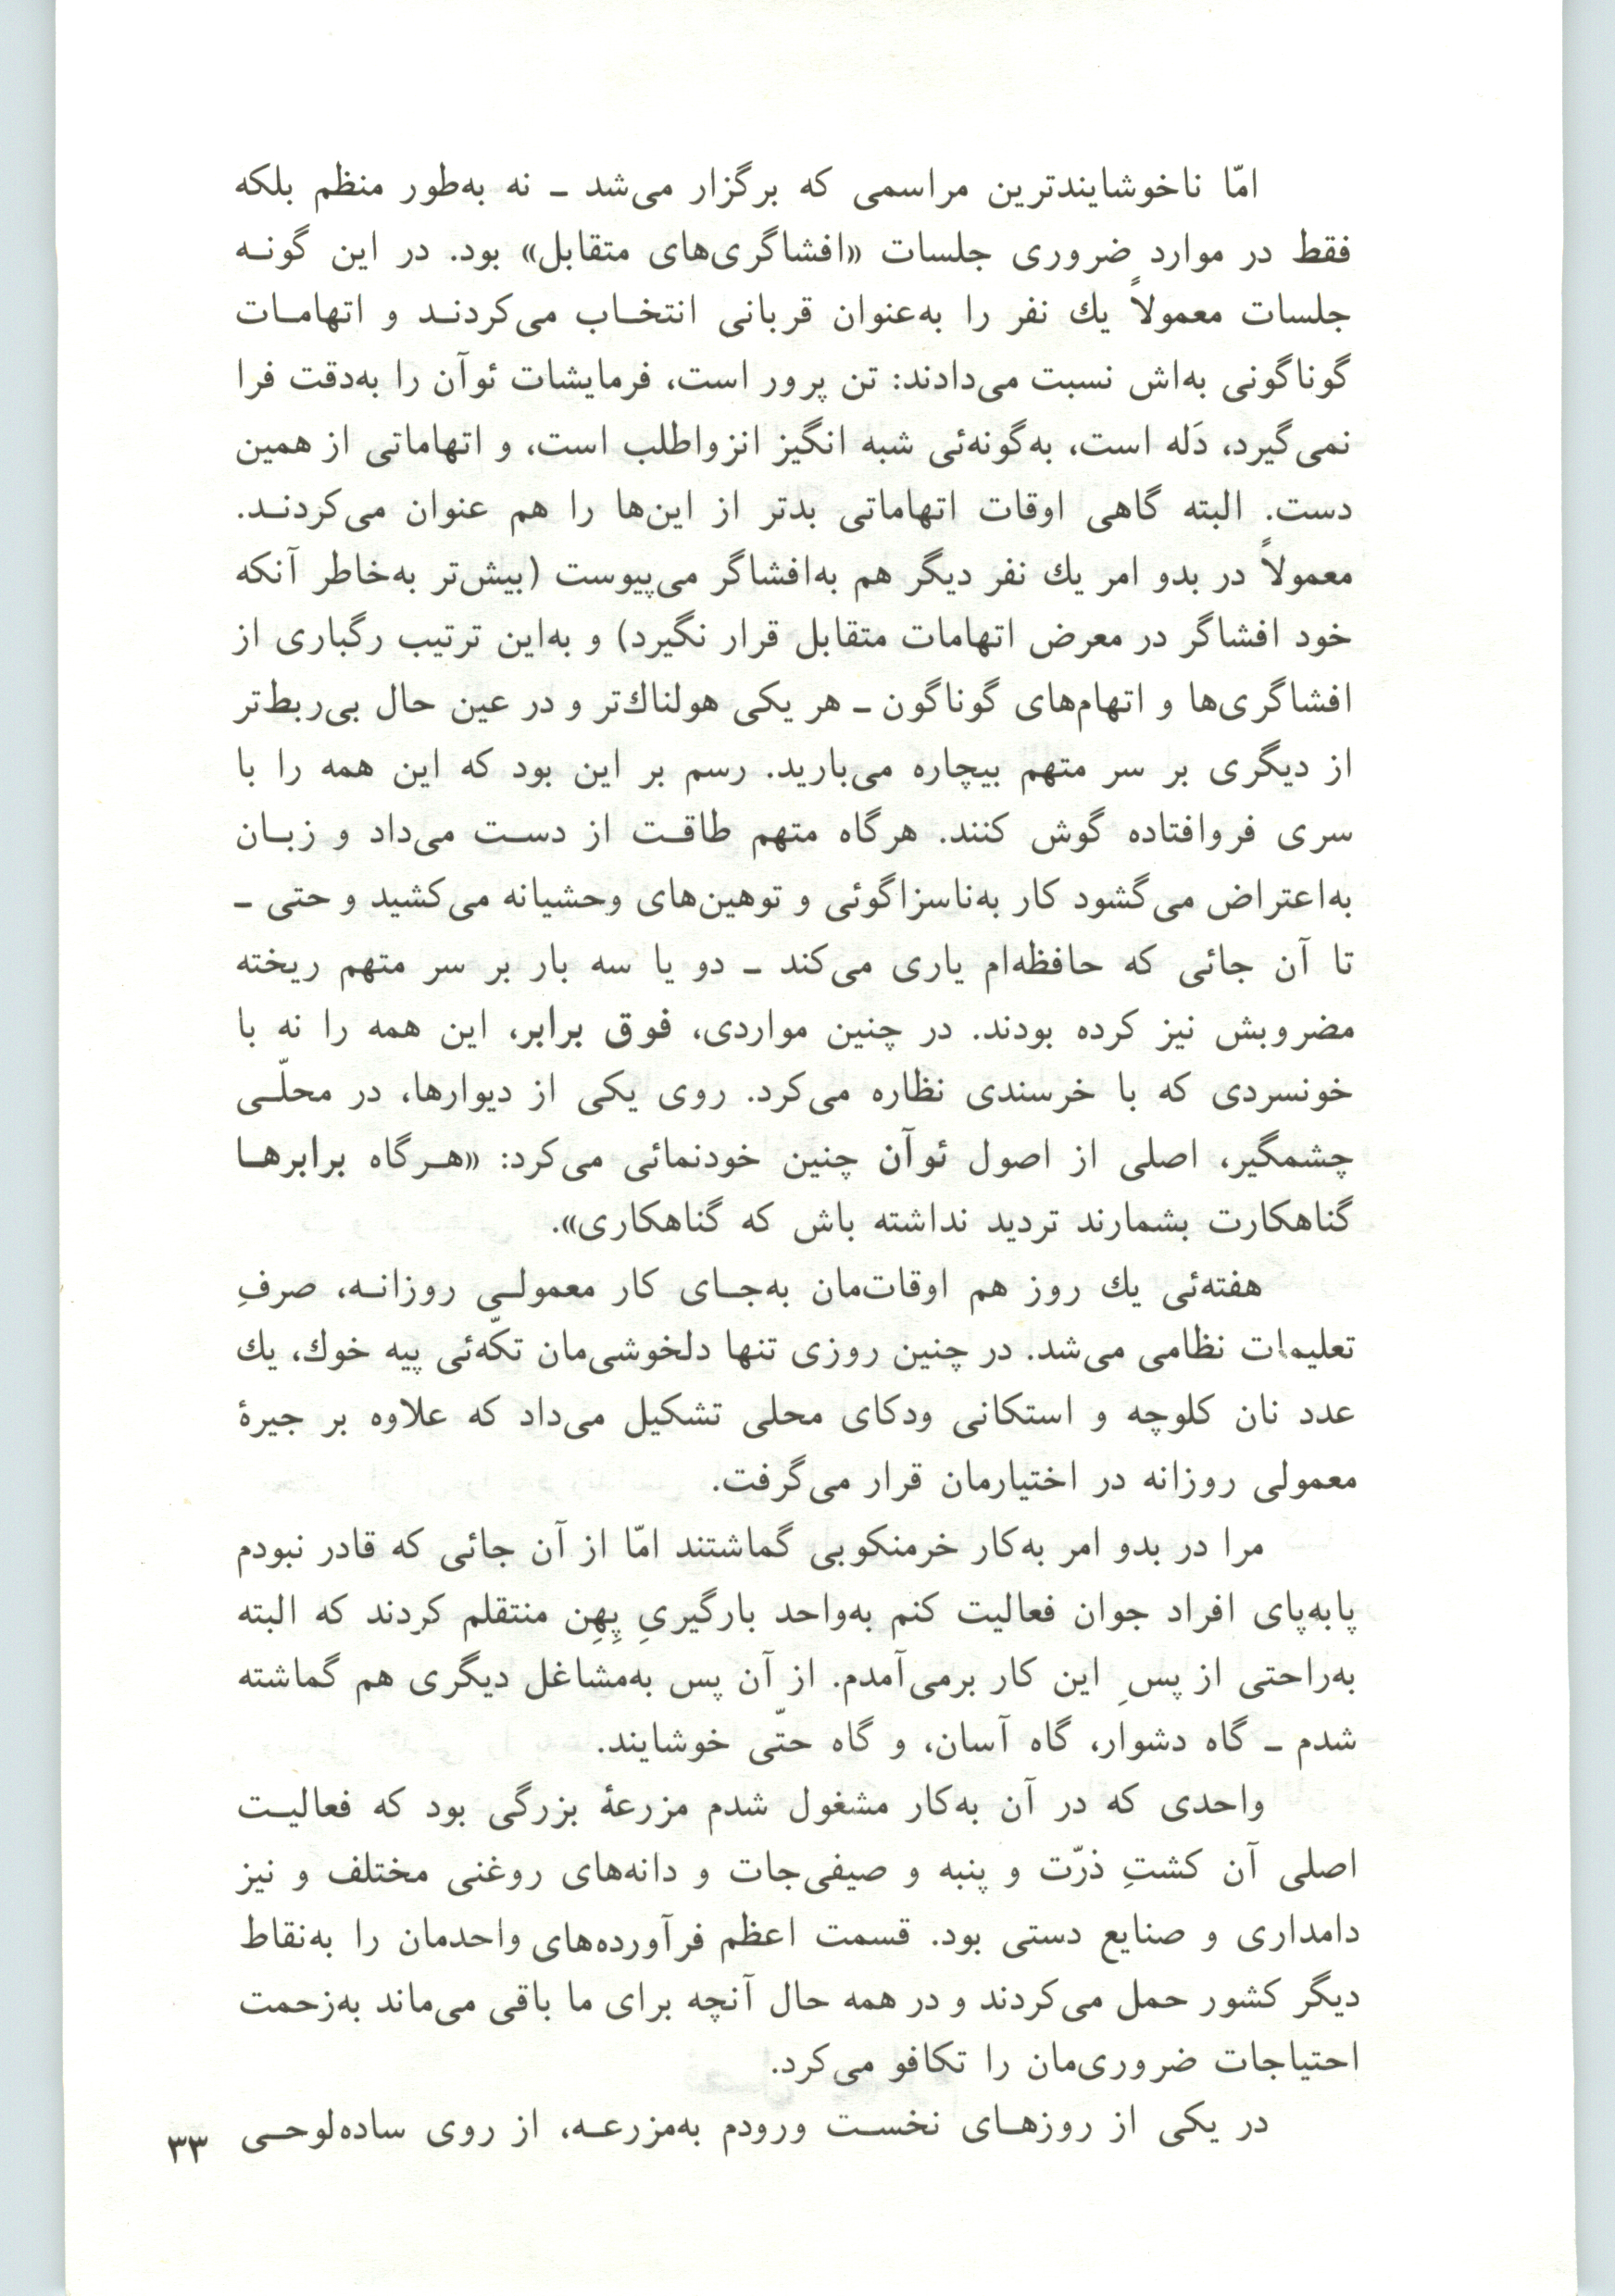 امّا ناخوشایندترین مراسمی که برگزار می‌شد ـ نه به‌طور منظم بلکه
فقط در موارد ضروری جلسات «افشاگری‌های متقابل» بود. در این گونه
جلسات معمولاً یك نفر را به‌عنوان قربانی انتخاب می‌کردند و اتهامات
گوناگونی به‌اش نسبت می‌دادند: تن پرور است، فرمایشات ئوآن را به‌دقت فرا
نمی‌گیرد، دَله است، به‌گونه‌ئی شبه انگیز انزواطلب است، و اتهاماتی از همین
دست. البته گاهی اوقات اتهاماتی بدتر از این‌ها را هم عنوان می‌کردند.
معمولاً در بدو امر یك نفر دیگر هم به‌افشاگر می‌پیوست (بیش‌تر به‌خاطر آنکه
خود افشاگر در معرض اتهامات متقابل قرار نگیرد) و به‌این ترتیب رگباری از
افشاگری‌ها و اتهام‌های گوناگون ـ هر یکی هولناك‌تر و در عین حال بی‌ربط‌تر
از دیگری بر سر متهم بیچاره می‌بارید. رسم بر این بود که این همه را با
سری فروافتاده گوش کنند. هرگاه متهم طاقت از دست می‌داد و زبان
به‌اعتراض می‌گشود کار به‌ناسزاگوئی و توهین‌های وحشیانه می‌کشید و حتی ـ
تا آن جائی که حافظه‌ام یاری می‌کند ـ دو یا سه بار بر سر متهم ریخته
مضروبش نیز کرده بودند. در چنین مواردی، فوق برابر، این همه را نه با
خونسردی که با خرسندی نظاره می‌کرد. روی یکی از دیوارها، در محلّی
چشمگیر، اصلی از اصول ئوآن چنین خودنمائی می‌کرد: «هرگاه برابرها
گناهکارت بشمارند تردید نداشته باش که گناهکاری».
هفته‌ئی یك روز هم اوقات‌مان به‌جای کار معمولی روزانه، صرفِ
تعلیمات نظامی می‌شد. در چنین روزی تنها دلخوشی‌مان تکّه‌ئی پیه خوك، یك
عدد نان کلوچه و استکانی ودکای محلی تشکیل می‌داد که علاوه بر جیرهٔ
معمولی روزانه در اختیارمان قرار می‌گرفت.
مرا در بدو امر به‌کار خرمنکوبی گماشتند امّا از آن جائی که قادر نبودم
پابه‌پای افراد جوان فعالیت کنم به‌واحد بارگیریِ پِهِن منتقلم کردند که البته
به‌راحتی از پسِ این کار برمی‌آمدم. از آن پس به‌مشاغل دیگری هم گماشته
شدم ـ گاه دشوار، گاه آسان، و گاه حتّی خوشایند.
واحدی که در آن به‌کار مشغول شدم مزرعهٔ بزرگی بود که فعالیت
اصلی آن کشتِ ذرّت و پنبه و صیفی‌جات و دانه‌های روغنی مختلف و نیز
دامداری و صنایع دستی بود. قسمت اعظم فرآورده‌های واحدمان را به‌نقاط
دیگر کشور حمل می‌کردند و در همه حال آنچه برای ما باقی می‌ماند به‌زحمت
احتیاجات ضروری‌مان را تکافو می‌کرد.
در یکی از روزهای نخست ورودم به‌مزرعه، از روی ساده‌لوحی
۳۳